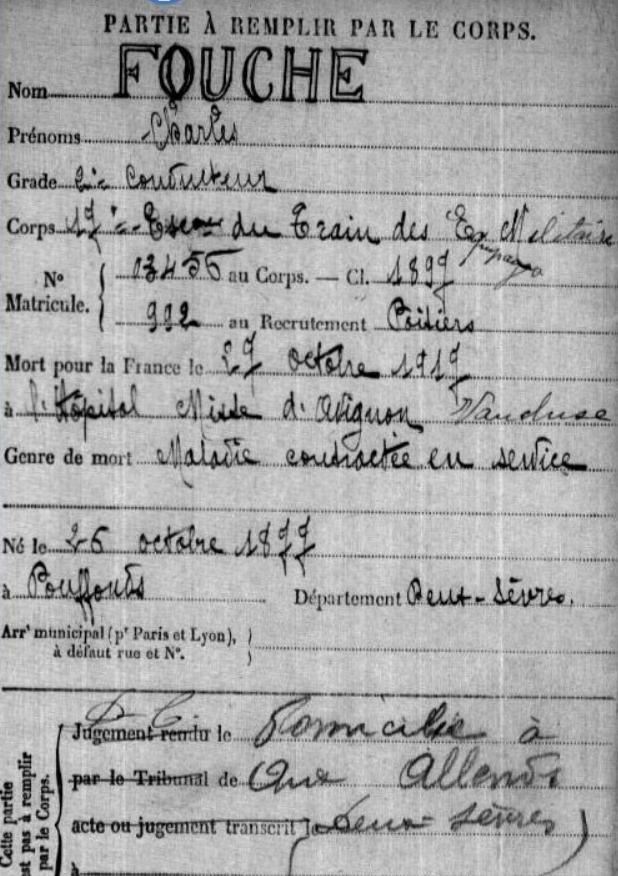 PARTIE À REMPLIR PAR LE CORPS.
Nom FOUCHE
Prénoms Charles
Grade 2e Conducteur
Corps 17e Escon du Train des Eq Militaire
N° Matricule. 03455 au Corps. — Cl. 1897
902 au Recrutement Poitiers
Mort pour la France le 27 octobre 1917
à l'Hôpital Mixte d'Avignon Vaucluse
Genre de mort Maladie contractée en service
Né le 26 octobre 1877
à Pouffonds Département Deux-Sèvres.
Arrt municipal (pr Paris et Lyon),
à défaut rue et N°.
Cette partie
est pas à remplir
par le Corps.
Jugement rendu le Domicilié à
par le Tribunal de
acte ou jugement transcrit le Deux-Sèvres
à